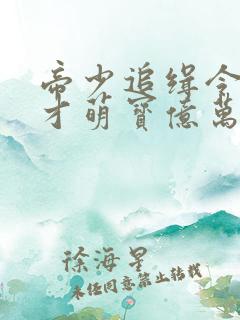 帝少追缉令
才萌寶億萬
徐海星
未经同意禁止转载